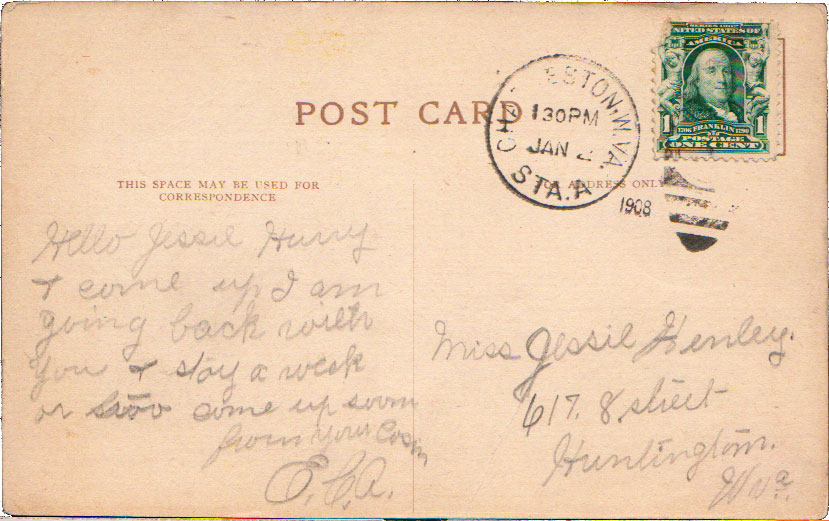 POST CARD
THIS SPACE MAY BE USED FOR
CORRESPONDENCE
ADDRESS ONLY
CHA ESTON, W.VA.
1 30 PM
JAN 2
STA. A
1908
UNITED STATES OF
AMERICA
1 1706 FRANKLIN 1790 1
POSTAGE
ONE CENT
Hello Jessie Hurry
& come up I am
going back with
you & stay a week
or two come up soon
from your Cosin
E.C.A.
Miss Jessie Henley.
617. 8 street
Huntington.
W va.